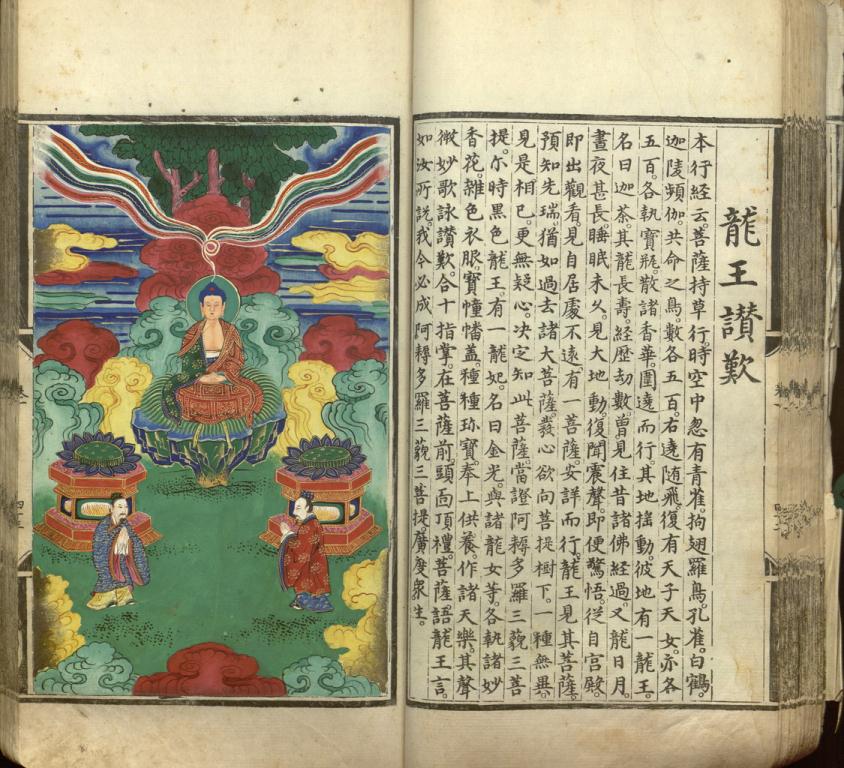 龍王讃歎
本行經云。菩薩持草行時空中忽有青雀。拘翅羅鳥。孔雀。白鶴。
迦陵頻伽。共命之鳥。數各五百。右遶隨飛。復有天子天女。亦各
五百。各執寳瓶。散諸香華。圍遶而行。其地搖動。彼地有一龍王。
名曰迦荼。其龍長壽。經歷劫數。曾見住昔諸佛經過。又龍日月。
晝夜甚長。睡眠未久。見大地動。復聞震聲。即便驚悟。從自宫殿。
即出觀看。見自居處不遠。有一菩薩。安詳而行。龍王見其菩薩。
預知先瑞。猶如過去諸大菩薩。發心欲向菩提樹下。一種無異。
見是相已。更無疑心。决定知此菩薩。當證阿耨多羅三藐三菩
提。尒時黒色龍王有一龍妃。名曰金光。與諸龍女等。各執諸妙
香花。雜色衣服。寳幢幡盖。種種珎寳。奉上供養。作諸天樂。其聲
微妙歌詠讃歎。合十指掌。在菩薩前。頭面頂禮。菩薩語龍王言。
如汝所說。我今必成阿耨多羅三藐三菩提。廣度衆生。